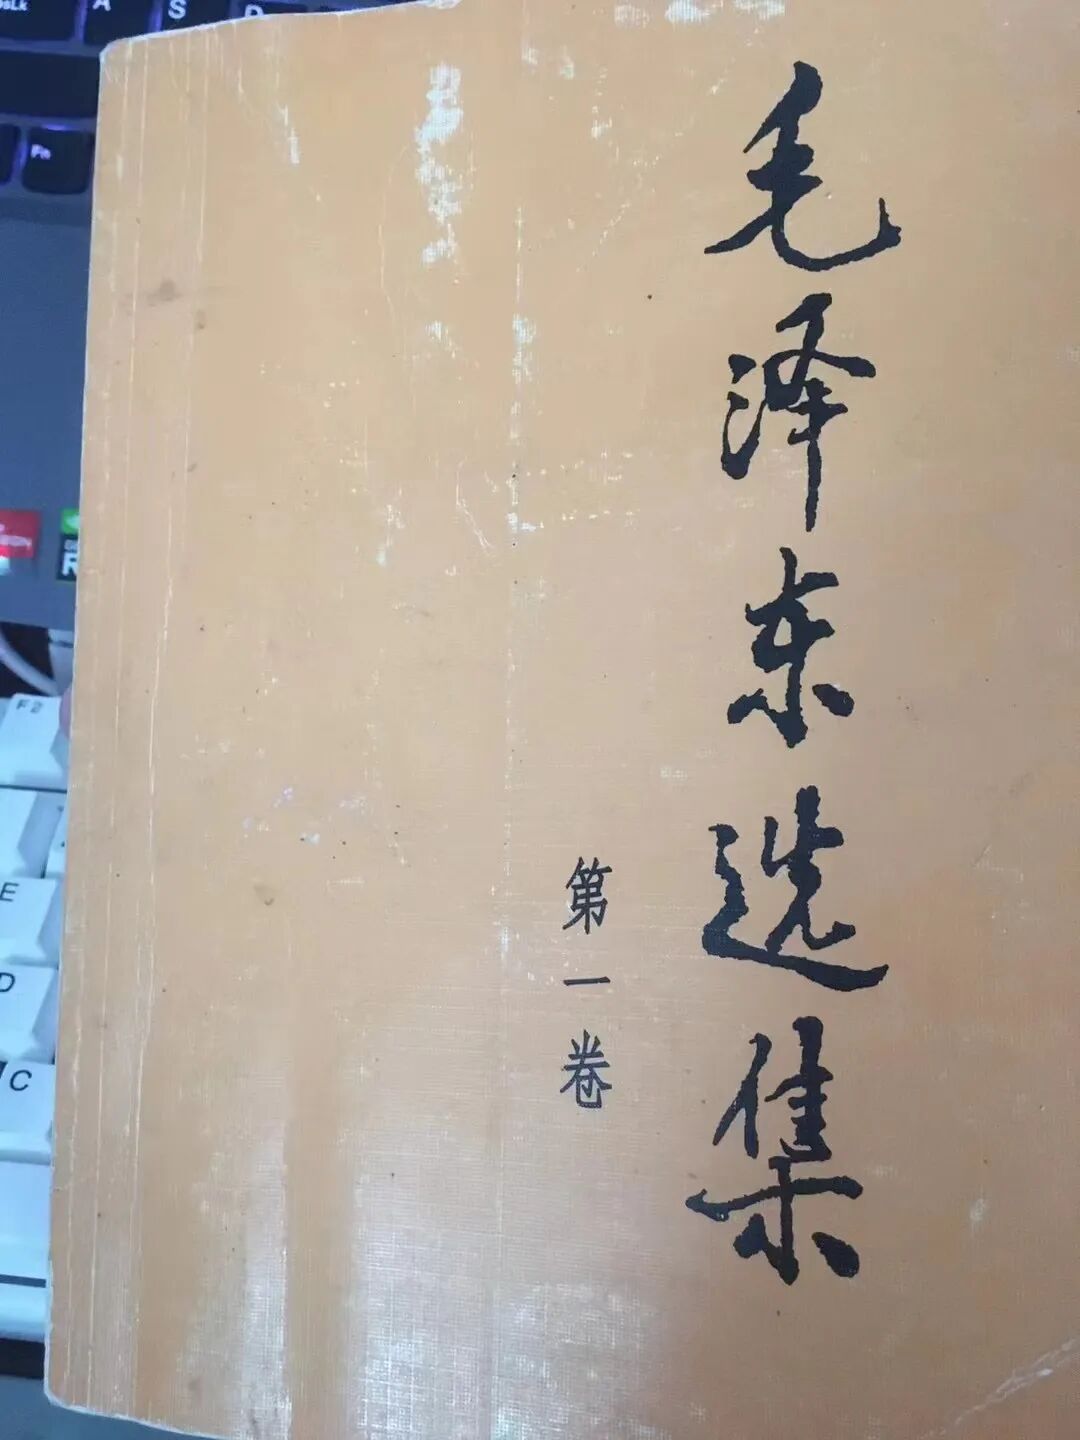 毛泽东选集
第一卷
A
S
Fn
F2
E
D
C